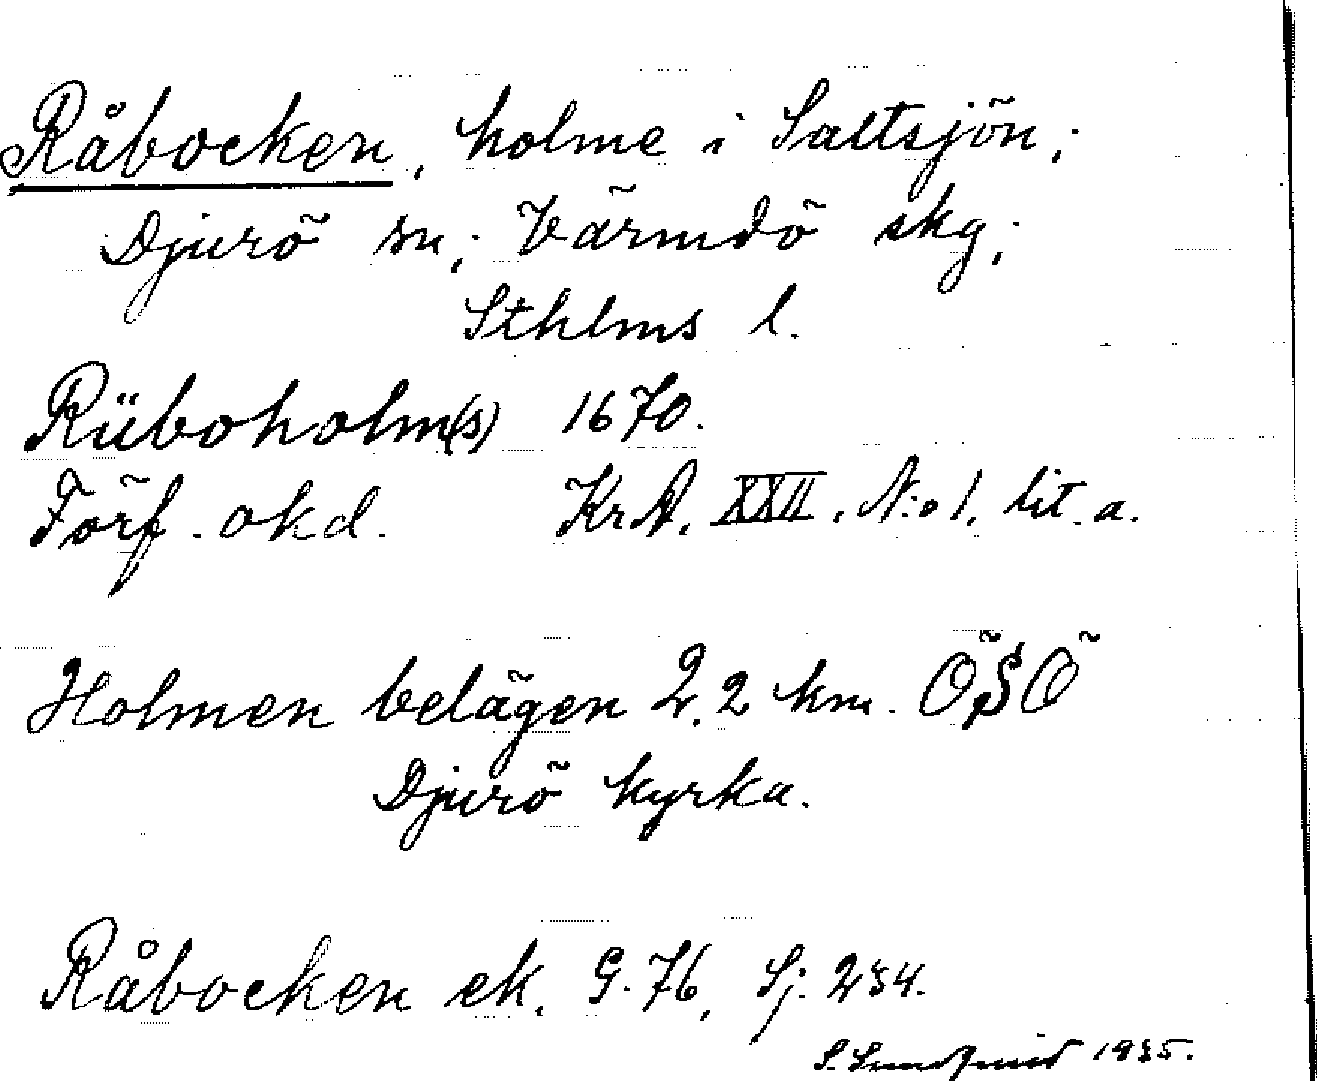 Råbocken, holme i Saltsjön;
Djurö sn; Värmdö skg;
Sthlms l.
Rüboholm(s) 1670.
Förf. okd. KrA. XXII. N:o 1. lit. a.
Holmen belägen 2,2 km. ÖSÖ
Djurö kyrka.
Råbocken ek. G. 76, Sj. 234.
S. Lundquist 1935.